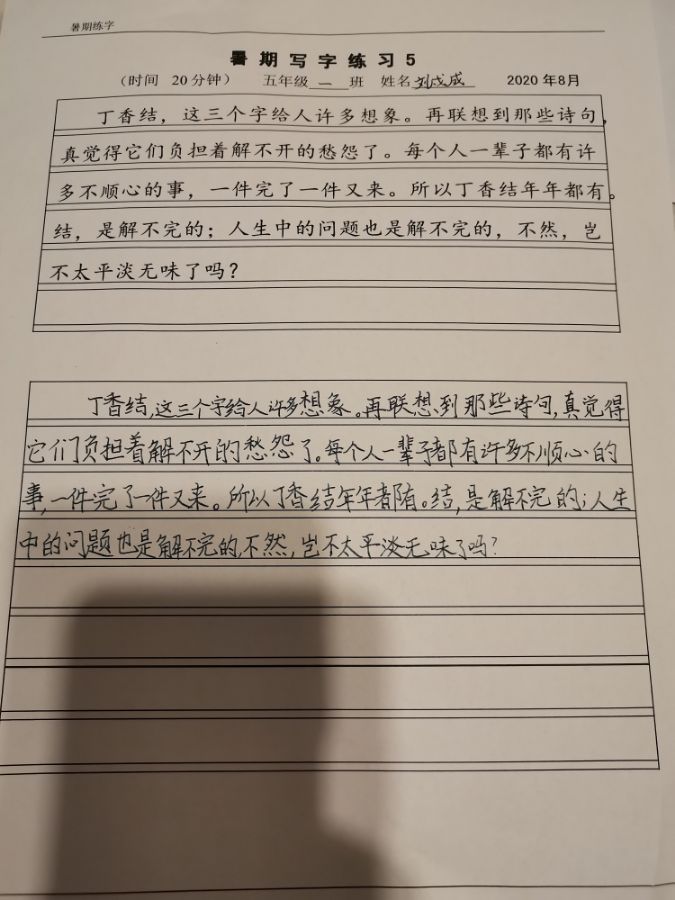 暑期练字
暑期写字练习5
（时间 20分钟） 五年级一班 姓名刘戊成 2020年8月
丁香结，这三个字给人许多想象。再联想到那些诗句，
真觉得它们负担着解不开的愁怨了。每个人一辈子都有许
多不顺心的事，一件完了一件又来。所以丁香结年年都有。
结，是解不完的；人生中的问题也是解不完的，不然，岂
不太平淡无味了吗？
丁香结，这三个字给人许多想象。再联想到那些诗句，真觉得
它们负担着解不开的愁怨了。每个人一辈子都有许多不顺心的
事，一件完了一件又来。所以丁香结年年都有。结，是解不完的；人生
中的问题也是解不完的，不然，岂不太平淡无味了吗？